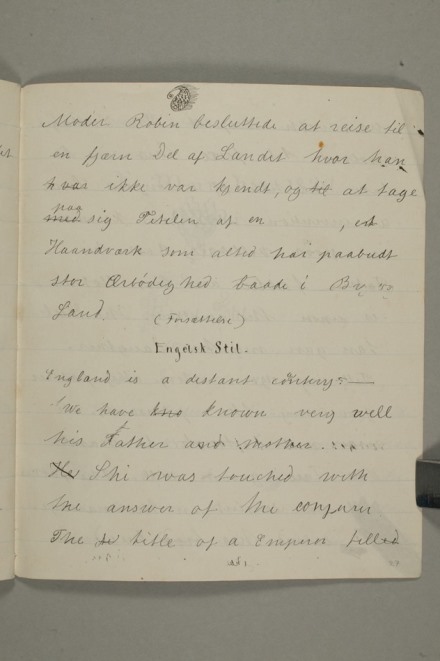 Moder Robin besluttede at reise til
en fjærn Del af Landet hvor han
hvor ikke var kjendt, og til at tage
paa
med sig Titelen af en , et
Haandværk som altid har paabudt
stor Ærbødighed baade i By og
Land. (Forsættelse)
Engelsk Stil.
England is a distant contery. —
We have kno known very well
his Father and mother.
He Shi was touched with
the answer of the conjurer
The te title of a Emperor filled